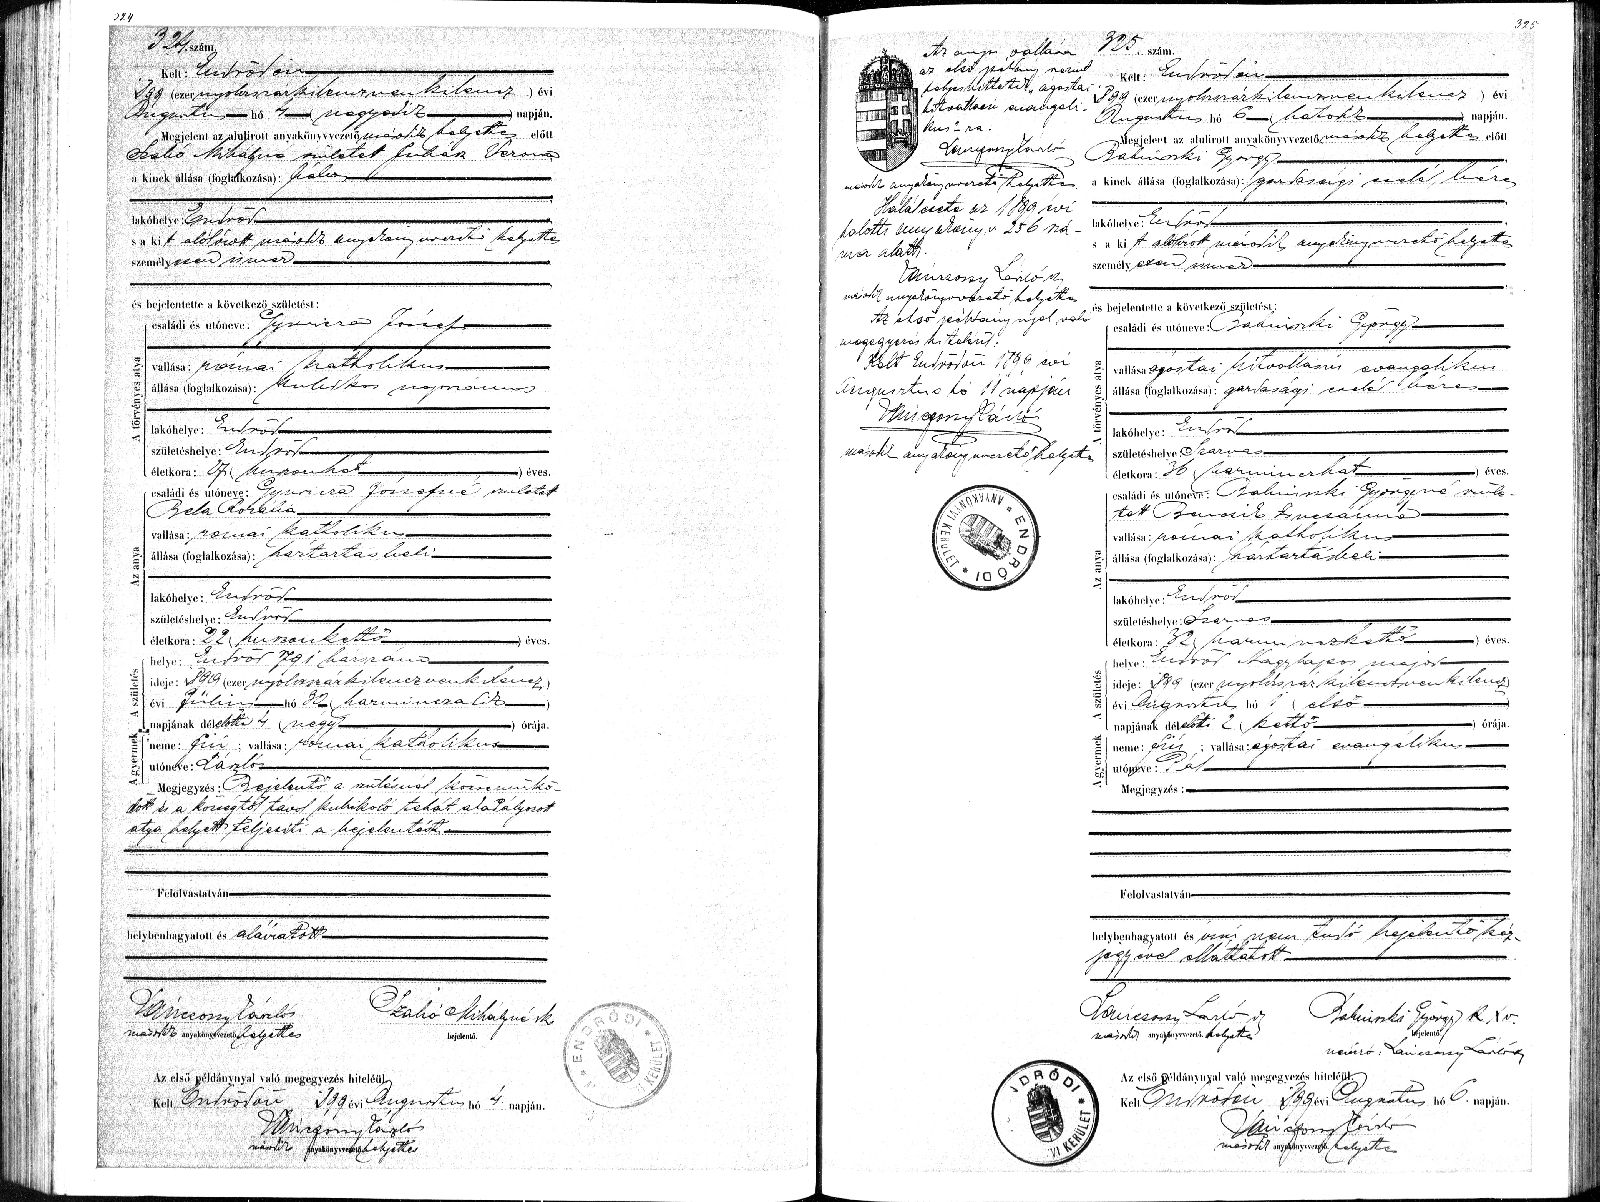 324
324. szám.
Kelt: Endrődön
899 (ezer nyolcszázkilenczvenkilencz) évi
Augusztus hó 4 (negyedik) napján.
Megjelent az alulirott anyakönyvvezető második helyettes előtt
Szabó Mihályné született Juhász Verona
a kinek állása (foglalkozása): bába
lakóhelye: Endrőd
s a kit alólirott második anyakönyvvezető helyettes
személyesen ismer
és bejelentette a következő születést:
A törvényes atya
családi és utóneve: Gyuricza József
vallása: római katholikus
állása (foglalkozása): kubikos napszámos
lakóhelye: Endrőd
születéshelye: Endrőd
életkora: (huszonhat) éves.
Az anya
családi és utóneve: Gyuricza Józsefné született
Bela Rozália
vallása: római katholikus
állása (foglalkozása): háztartásbeli
lakóhelye: Endrőd
születéshelye: Endrőd
életkora: 22 (huszonkettő) éves.
A születés
helye: Endrőd 791 házszám
ideje: 899 (ezer nyolcszázkilenczvenkilencz)
évi Július hó 30 (harminczadik)
napjának délelőtti 4 (négy) órája.
A gyermek
neme: fiú; vallása: római katholikus
utóneve: László
Megjegyzés: Bejelentő a szülésnél közremükö-
dött és a községtől távol kubikoló tehát akadályozott
atya helyett teljesíti a bejelentést.
Felolvastatván
helybenhagyatott és aláiratott
Váncsony László
második anyakönyvvezető helyettes
Szabó Mihályné sk
bejelentő.
Az első példánynyal való megegyezés hiteléül
Kelt Endrődön 899 évi Augusztus hó 4. napján.
Váncsony László
második anyakönyvvezető helyettes
ENDRŐDI
325
Az anya vallása
az első példány szerint
helyesbíttetik, ágostai
hitvallású evangeli-
kus-ra.
Váncsony László
második anyakönyvvezető helyettes
Halálesete az 1899 évi
halotti anyakönyv 256 szá-
mor alatt.
Váncsony László sk
második anyakönyvvezető helyettes
Az első példánynyal való
megegyezés hiteléül.
Kelt Endrődön 1899 évi
Augusztus hó 11 napján
Váncsony László
második anyakönyvvezető helyettes
ENDRŐDI * ANYAKÖNYVI KERÜLET *
325. szám.
Kelt: Endrődön
899 (ezer nyolcszázkilenczvenkilencz) évi
Augusztus hó 6 (hatodik) napján.
Megjelent az alulirott anyakönyvvezető második helyettes előtt
Balvinski György
a kinek állása (foglalkozása): gazdasági cseléd, béres
lakóhelye: Endrőd
s a kit alólirott második anyakönyvvezető helyettes
személyesen ismer
és bejelentette a következő születést:
A törvényes atya
családi és utóneve: Balvinski György
vallása: ágostai hitvallású evangelikus
állása (foglalkozása): gazdasági cseléd béres
lakóhelye: Endrőd
születéshelye: Szarvas
életkora: 36 (harminczhat) éves.
Az anya
családi és utóneve: Balvinski Györgyné szüle-
tett Zsuzsánna
vallása: római katholikus
állása (foglalkozása): háztartásbeli
lakóhelye: Endrőd
születéshelye: Szarvas
életkora: 32 (harminczkettő) éves.
A születés
helye: Endrőd Nagylapos major
ideje: 899 (ezer nyolcszázkilenczvenkilencz)
évi Augusztus hó 1 (első)
napjának délelőtti 2 (kettő) órája.
A gyermek
neme: fiú; vallása: ágostai evangélikus
utóneve: Pál
Megjegyzés:
Felolvastatván
helybenhagyatott és irni nem tudó bejelentő kéz-
jegyével elláttatott
Váncsony László sk
második anyakönyvvezető helyettes
Balvinski György sk X v.
bejelentő.
névíró: Váncsony László sk
Az első példánynyal való megegyezés hiteléül
Kelt Endrődön 899 évi Augusztus hó 6. napján.
Váncsony László
második anyakönyvvezető helyettes
NDRŐDI * VI KERÜLET